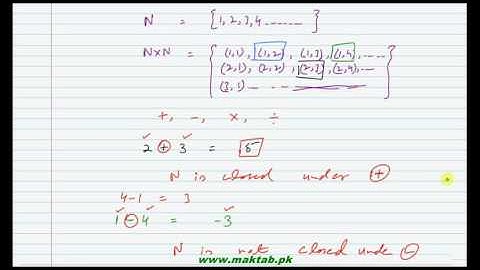 N = { 1, 2, 3, 4 ........ }
N×N = { (1,1), (1,2), (1,3), (1,4), ......
(2,1), (2,2), (2,3), (2,4), ....
(3,1) ... .. }
+, -, ×, ÷
2 ⊕ 3 = 5
N is closed under ⊕
4-1 = 3
1 ⊖ 4 = -3
N is not closed unde ⊖
www.maktab.pk